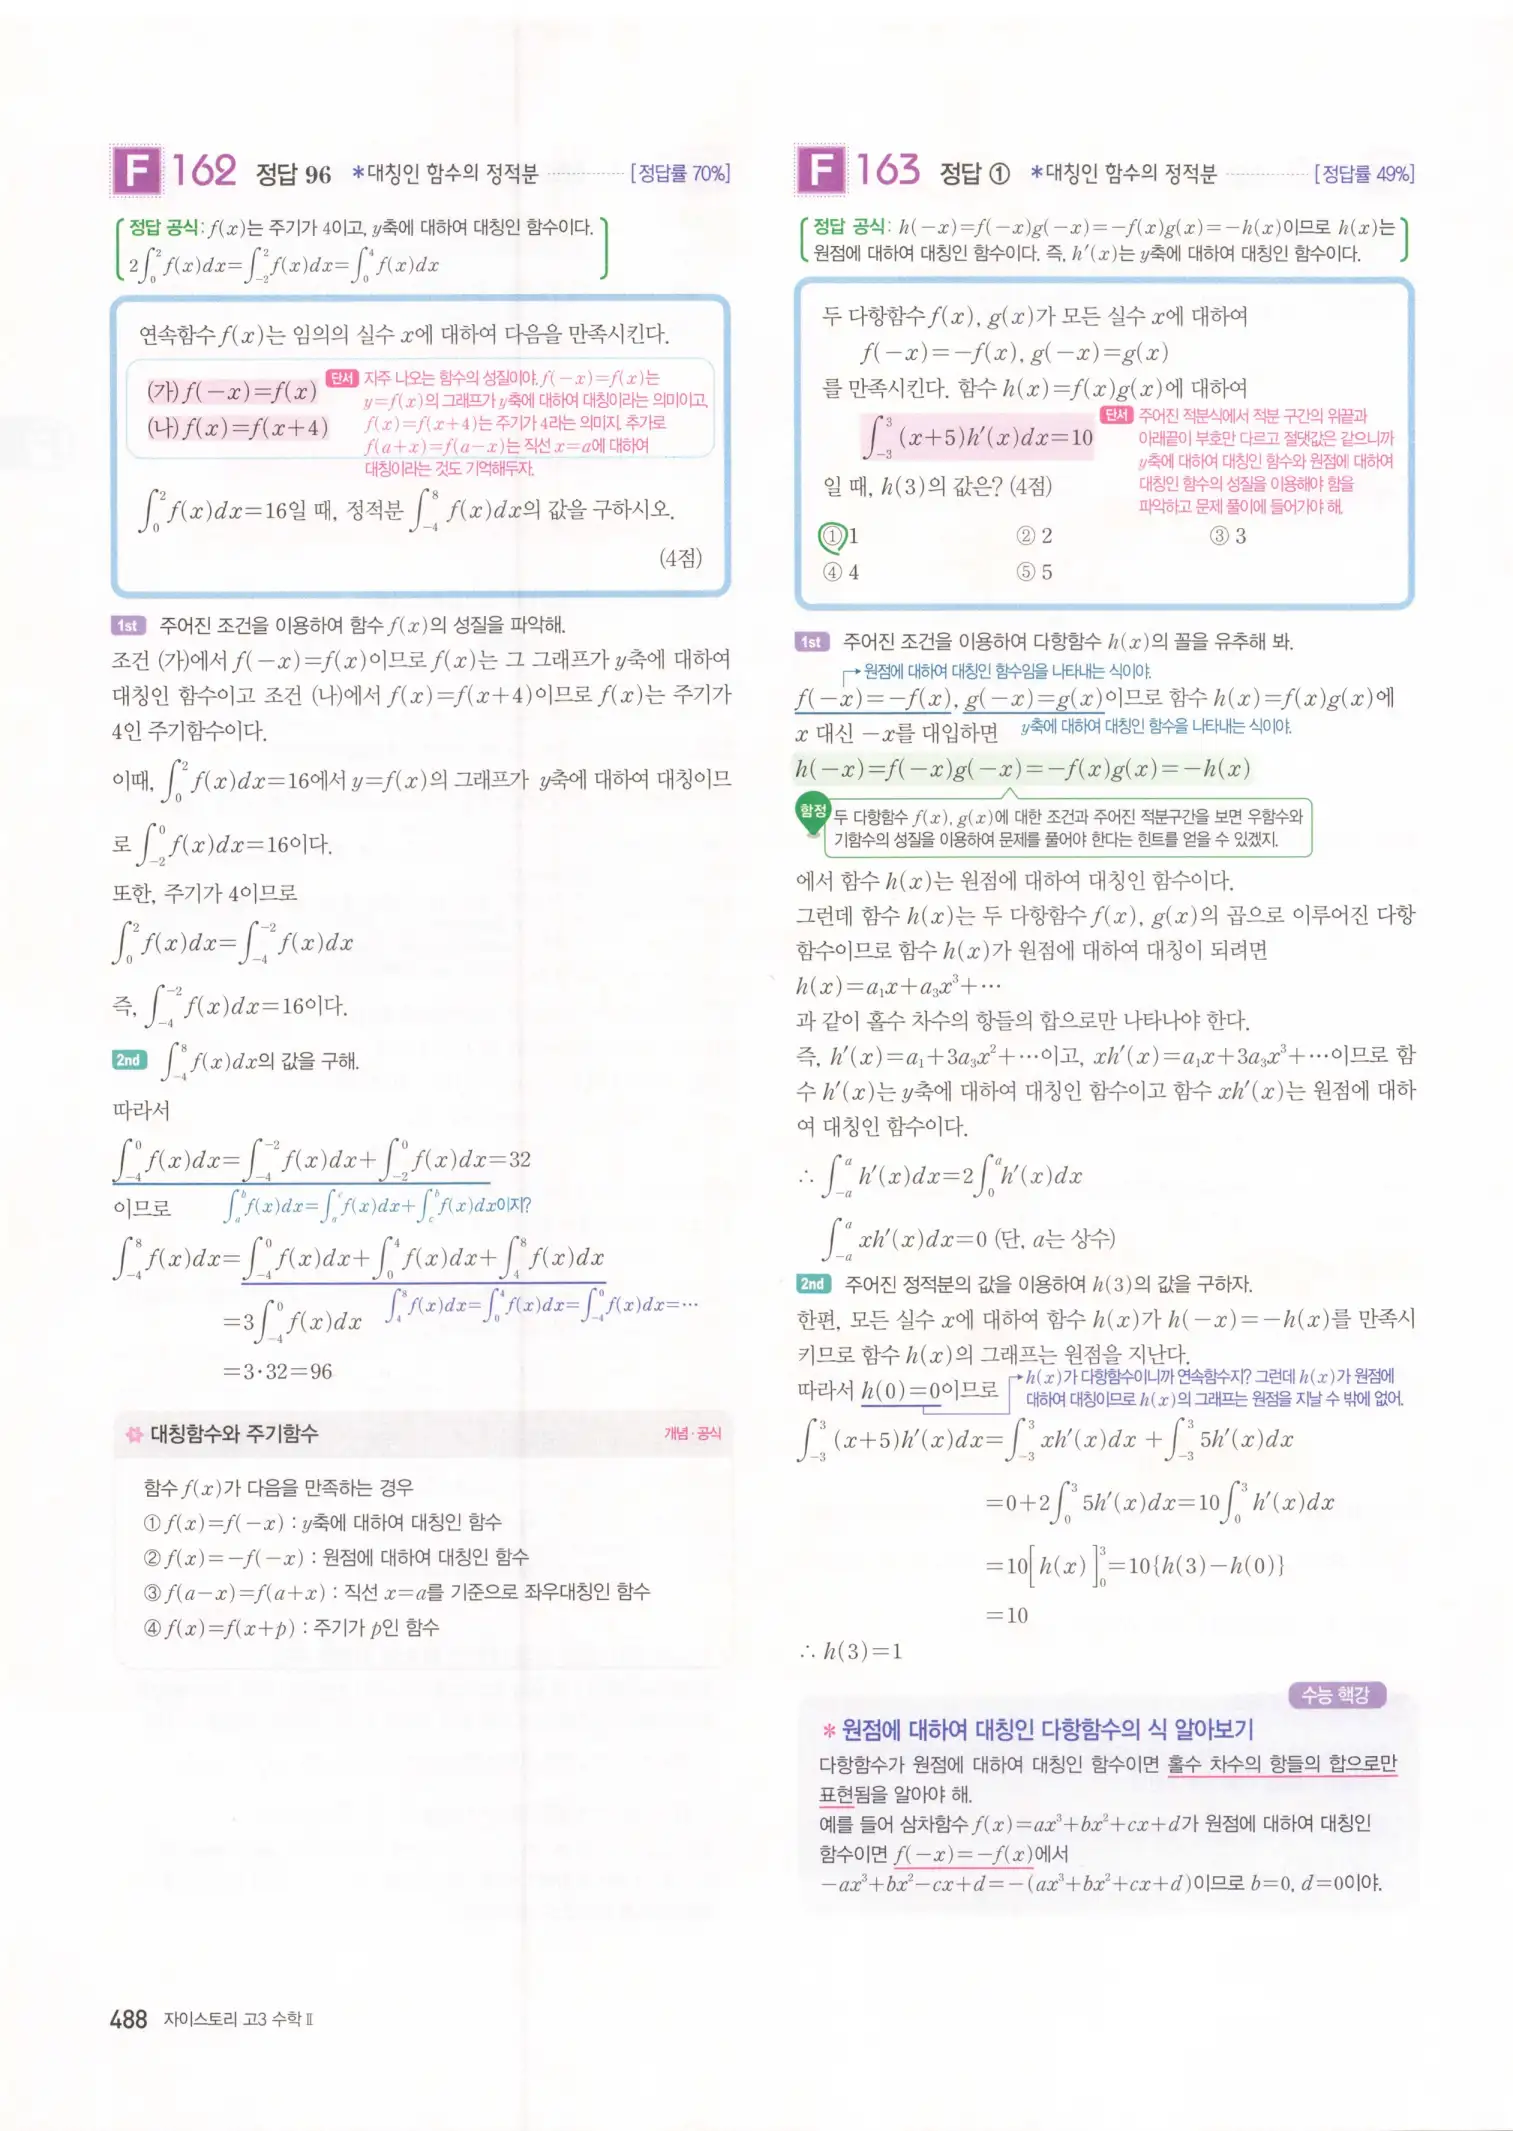 F 162 정답 96 *대칭인 함수의 정적분 [정답률 70%]
정답 공식: f(x)는 주기가 4이고, y축에 대하여 대칭인 함수이다.
2∫₀² f(x)dx=∫₋₂² f(x)dx=∫₀⁴ f(x)dx
연속함수 f(x)는 임의의 실수 x에 대하여 다음을 만족시킨다.
(가) f(-x)=f(x)
(나) f(x)=f(x+4)
단서 자주 나오는 함수의 성질이야. f(-x)=f(x)는
y=f(x)의 그래프가 y축에 대하여 대칭이라는 의미이고,
f(x)=f(x+4)는 주기가 4라는 의미지. 추가로
f(a+x)=f(a-x)는 직선 x=a에 대하여
대칭이라는 것도 기억해두자.
∫₀² f(x)dx=16일 때, 정적분 ∫₋₄⁸ f(x)dx의 값을 구하시오.
(4점)
1st 주어진 조건을 이용하여 함수 f(x)의 성질을 파악해.
조건 (가)에서 f(-x)=f(x)이므로 f(x)는 그 그래프가 y축에 대하여
대칭인 함수이고 조건 (나)에서 f(x)=f(x+4)이므로 f(x)는 주기가
4인 주기함수이다.
이때, ∫₀² f(x)dx=16에서 y=f(x)의 그래프가 y축에 대하여 대칭이므
로 ∫₋₂⁰ f(x)dx=16이다.
또한, 주기가 4이므로
∫₀² f(x)dx=∫₋₄⁻² f(x)dx
즉, ∫₋₄⁻² f(x)dx=16이다.
2nd ∫₋₄⁸ f(x)dx의 값을 구해.
따라서
∫₋₄⁰ f(x)dx=∫₋₄⁻² f(x)dx+∫₋₂⁰ f(x)dx=32
이므로 ∫ₐᵇ f(x)dx=∫ₐᶜ f(x)dx+∫꜀ᵇ f(x)dx이지?
∫₋₄⁸ f(x)dx=∫₋₄⁰ f(x)dx+∫₀⁴ f(x)dx+∫₄⁸ f(x)dx
=3∫₋₄⁰ f(x)dx ∫₄⁸ f(x)dx=∫₀⁴ f(x)dx=∫₋₄⁰ f(x)dx=⋯
=3·32=96
대칭함수와 주기함수 개념·공식
함수 f(x)가 다음을 만족하는 경우
① f(x)=f(-x) : y축에 대하여 대칭인 함수
② f(x)=-f(-x) : 원점에 대하여 대칭인 함수
③ f(a-x)=f(a+x) : 직선 x=a를 기준으로 좌우대칭인 함수
④ f(x)=f(x+p) : 주기가 p인 함수
488 자이스토리 고3 수학Ⅱ
F 163 정답 ① *대칭인 함수의 정적분 [정답률 49%]
정답 공식: h(-x)=f(-x)g(-x)=-f(x)g(x)=-h(x)이므로 h(x)는
원점에 대하여 대칭인 함수이다. 즉, h′(x)는 y축에 대하여 대칭인 함수이다.
두 다항함수 f(x), g(x)가 모든 실수 x에 대하여
f(-x)=-f(x), g(-x)=g(x)
를 만족시킨다. 함수 h(x)=f(x)g(x)에 대하여
∫₋₃³ (x+5)h′(x)dx=10
단서 주어진 적분식에서 적분 구간의 위끝과
아래끝이 부호만 다르고 절댓값은 같으니까
y축에 대하여 대칭인 함수와 원점에 대하여
대칭인 함수의 성질을 이용해야 함을
파악하고 문제 풀이에 들어가야 해.
일 때, h(3)의 값은? (4점)
① 1 ② 2 ③ 3
④ 4 ⑤ 5
1st 주어진 조건을 이용하여 다항함수 h(x)의 꼴을 유추해 봐.
원점에 대하여 대칭인 함수임을 나타내는 식이야.
f(-x)=-f(x), g(-x)=g(x)이므로 함수 h(x)=f(x)g(x)에
x 대신 -x를 대입하면 y축에 대하여 대칭인 함수을 나타내는 식이야.
h(-x)=f(-x)g(-x)=-f(x)g(x)=-h(x)
함정 두 다항함수 f(x), g(x)에 대한 조건과 주어진 적분구간을 보면 우함수와
기함수의 성질을 이용하여 문제를 풀어야 한다는 힌트를 얻을 수 있겠지.
에서 함수 h(x)는 원점에 대하여 대칭인 함수이다.
그런데 함수 h(x)는 두 다항함수 f(x), g(x)의 곱으로 이루어진 다항
함수이므로 함수 h(x)가 원점에 대하여 대칭이 되려면
h(x)=a₁x+a₃x³+⋯
과 같이 홀수 차수의 항들의 합으로만 나타나야 한다.
즉, h′(x)=a₁+3a₃x²+⋯이고, xh′(x)=a₁x+3a₃x³+⋯이므로 함
수 h′(x)는 y축에 대하여 대칭인 함수이고 함수 xh′(x)는 원점에 대하
여 대칭인 함수이다.
∴ ∫₋ₐᵃ h′(x)dx=2∫₀ᵃ h′(x)dx
∫₋ₐᵃ xh′(x)dx=0 (단, a는 상수)
2nd 주어진 정적분의 값을 이용하여 h(3)의 값을 구하자.
한편, 모든 실수 x에 대하여 함수 h(x)가 h(-x)=-h(x)를 만족시
키므로 함수 h(x)의 그래프는 원점을 지난다.
따라서 h(0)=0이므로
h(x)가 다항함수이니까 연속함수지? 그런데 h(x)가 원점에
대하여 대칭이므로 h(x)의 그래프는 원점을 지날 수 밖에 없어.
∫₋₃³ (x+5)h′(x)dx=∫₋₃³ xh′(x)dx +∫₋₃³ 5h′(x)dx
=0+2∫₀³ 5h′(x)dx=10∫₀³ h′(x)dx
=10[h(x)]₀³=10{h(3)-h(0)}
=10
∴ h(3)=1
수능 핵강
* 원점에 대하여 대칭인 다항함수의 식 알아보기
다항함수가 원점에 대하여 대칭인 함수이면 홀수 차수의 항들의 합으로만
표현됨을 알아야 해.
예를 들어 삼차함수 f(x)=ax³+bx²+cx+d가 원점에 대하여 대칭인
함수이면 f(-x)=-f(x)에서
-ax³+bx²-cx+d=-(ax³+bx²+cx+d)이므로 b=0, d=0이야.